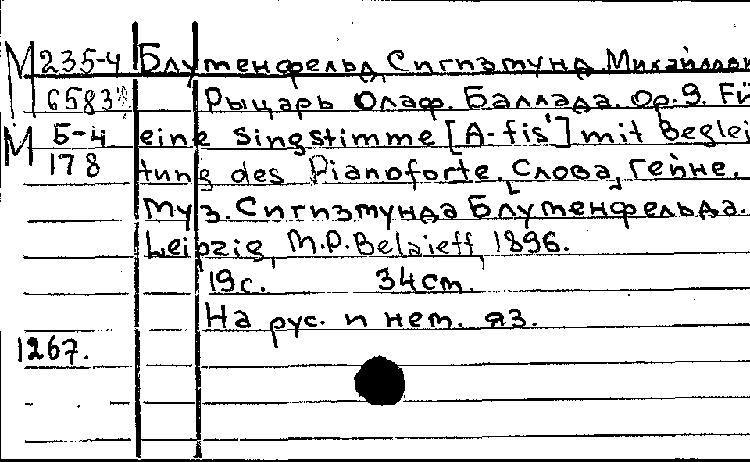 М 235-4 Блуменфельд, Сигизмунд Михайлови
6583 Рыцарь Олаф. Баллада. Op. 9. Fü
М Б-4 eine Singstimme [A-fis'] mit Beglei
178 tung des Pianoforte. Слова Гейне.
Муз. Сигизмунда Блуменфельда.
Leipzig, M.P. Belaieff, 1896.
19 с. 34 cm.
На рус. и нем. яз.
1267.